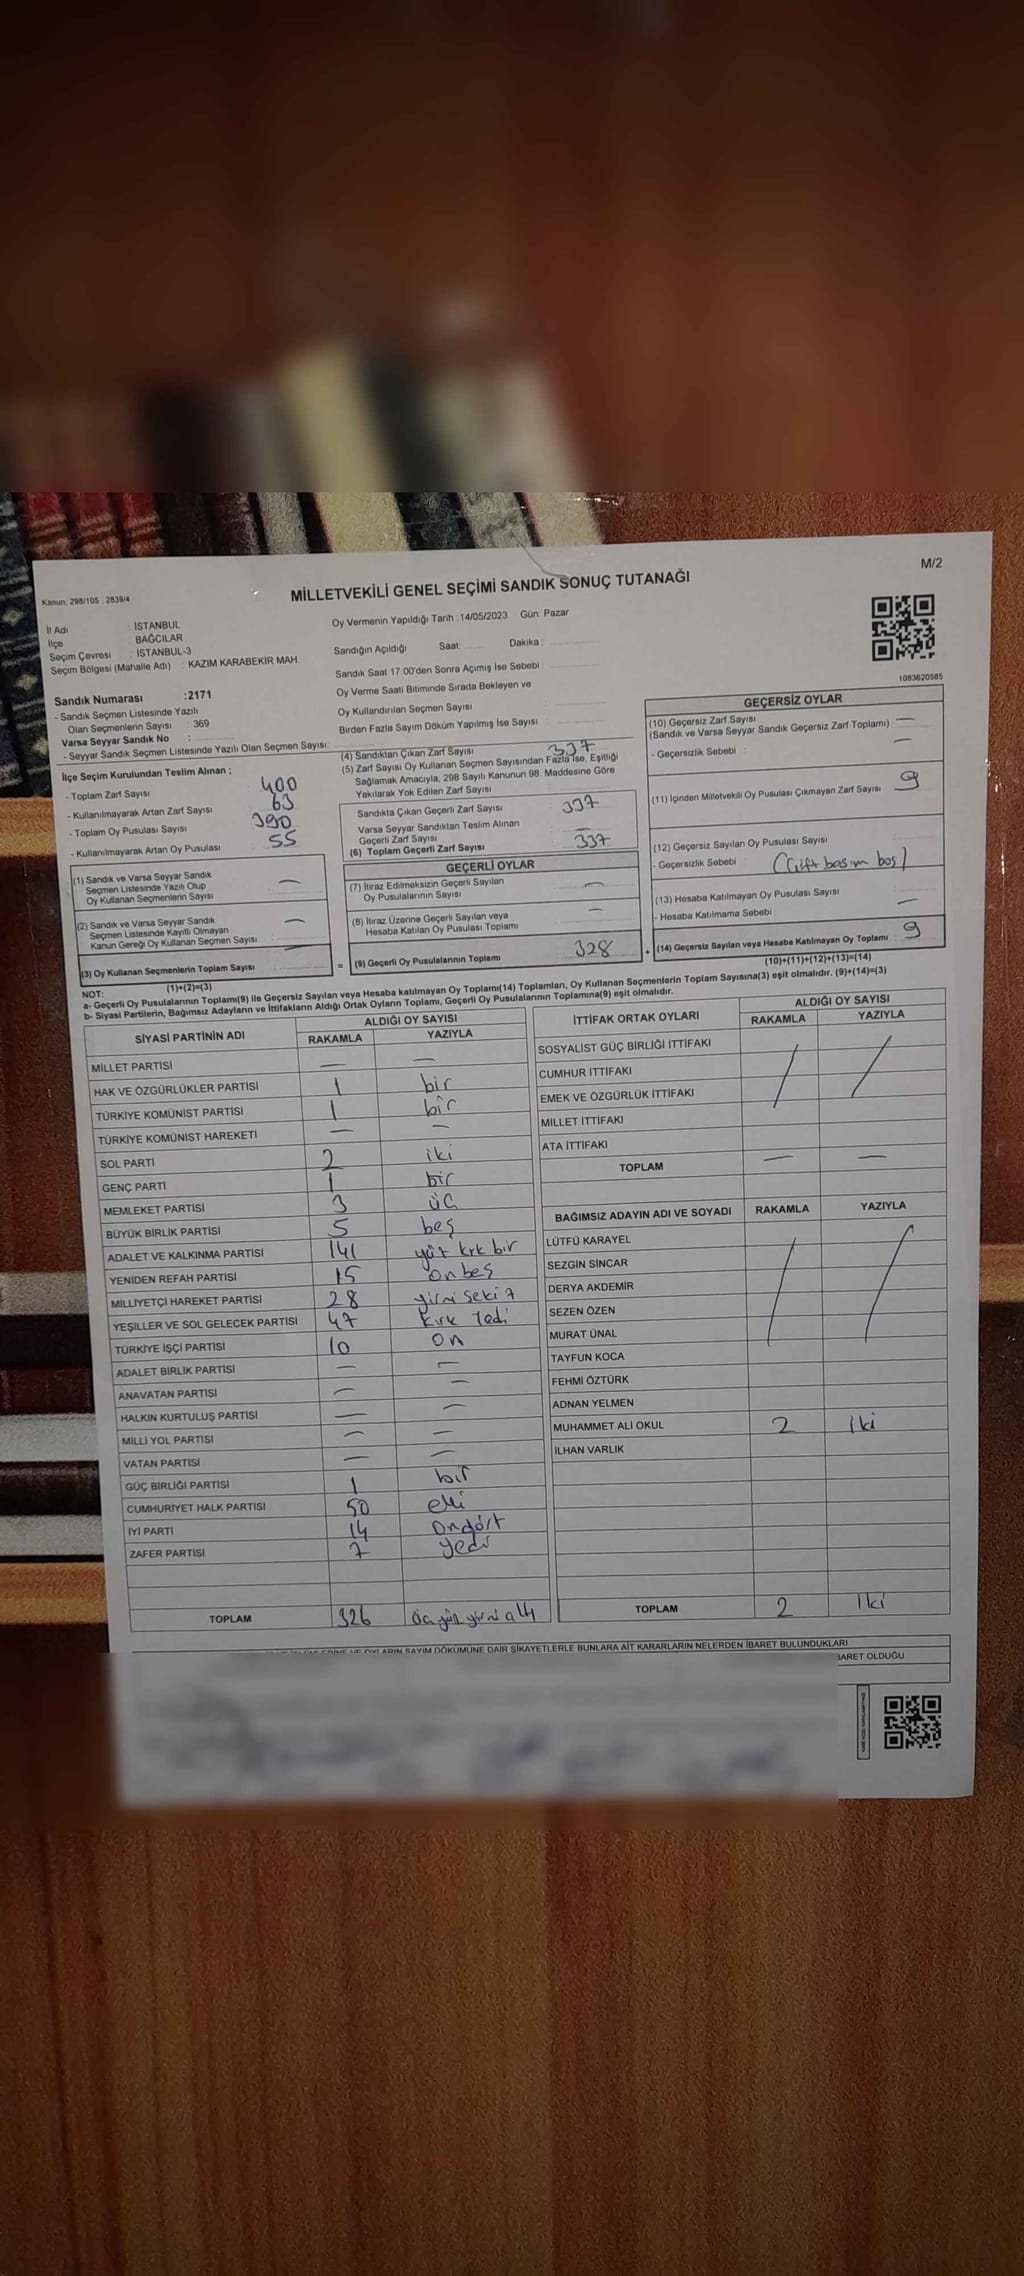 M/2
Kanun: 298/105 , 2839/4
MİLLETVEKİLİ GENEL SEÇİMİ SANDIK SONUÇ TUTANAĞI
İl Adı : İSTANBUL
İlçe : BAĞCILAR
Seçim Çevresi : İSTANBUL-3
Seçim Bölgesi (Mahalle Adı) : KAZIM KARABEKİR MAH.
Oy Vermenin Yapıldığı Tarih :14/05/2023 Gün: Pazar
Sandığın Açıldığı Saat: Dakika :
Sandık Saat 17:00'den Sonra Açılmış İse Sebebi :
Oy Verme Saati Bitiminde Sırada Bekleyen ve
Oy Kullandırılan Seçmen Sayısı :
Birden Fazla Sayım Döküm Yapılmış İse Sayısı :
1083620585
Sandık Numarası :2171
- Sandık Seçmen Listesinde Yazılı
Olan Seçmenlerin Sayısı : 369
Varsa Seyyar Sandık No :
- Seyyar Sandık Seçmen Listesinde Yazılı Olan Seçmen Sayısı:
İlçe Seçim Kurulundan Teslim Alınan ;
- Toplam Zarf Sayısı : 400
- Kullanılmayarak Artan Zarf Sayısı : 63
- Toplam Oy Pusulası Sayısı : 390
- Kullanılmayarak Artan Oy Pusulası : 55
(1) Sandık ve Varsa Seyyar Sandık
Seçmen Listesinde Yazılı Olup
Oy Kullanan Seçmenlerin Sayısı : —
(2) Sandık ve Varsa Seyyar Sandık
Seçmen Listesinde Kayıtlı Olmayan
Kanun Gereği Oy Kullanan Seçmen Sayısı : —
(3) Oy Kullanan Seçmenlerin Toplam Sayısı :
(1)+(2)=(3)
(4) Sandıktan Çıkan Zarf Sayısı : 337
(5) Zarf Sayısı Oy Kullanan Seçmen Sayısından Fazla İse, Eşitliği
Sağlamak Amacıyla, 298 Sayılı Kanunun 98. Maddesine Göre
Yakılarak Yok Edilen Zarf Sayısı :
Sandıkta Çıkan Geçerli Zarf Sayısı : 337
Varsa Seyyar Sandıktan Teslim Alınan
Geçerli Zarf Sayısı : —
(6) Toplam Geçerli Zarf Sayısı : 337
GEÇERLİ OYLAR
(7) İtiraz Edilmeksizin Geçerli Sayılan
Oy Pusulalarının Sayısı : —
(8) İtiraz Üzerine Geçerli Sayılan veya
Hesaba Katılan Oy Pusulası Toplamı : —
= (9) Geçerli Oy Pusulalarının Toplamı : 328 +
GEÇERSİZ OYLAR
(10) Geçersiz Zarf Sayısı
(Sandık ve Varsa Seyyar Sandık Geçersiz Zarf Toplamı) : —
- Geçersizlik Sebebi : —
(11) İçinden Milletvekili Oy Pusulası Çıkmayan Zarf Sayısı : 9
(12) Geçersiz Sayılan Oy Pusulası Sayısı
- Geçersizlik Sebebi : (Çift basım boş)
(13) Hesaba Katılmayan Oy Pusulası Sayısı : —
- Hesaba Katılmama Sebebi :
(14) Geçersiz Sayılan veya Hesaba Katılmayan Oy Toplamı : 9
(10)+(11)+(12)+(13)=(14)
NOT:
a- Geçerli Oy Pusulalarının Toplamı(9) ile Geçersiz Sayılan veya Hesaba katılmayan Oy Toplamı(14) Toplamları, Oy Kullanan Seçmenlerin Toplam Sayısına(3) eşit olmalıdır. (9)+(14)=(3)
b- Siyasi Partilerin, Bağımsız Adayların ve İttifakların Aldığı Ortak Oyların Toplamı, Geçerli Oy Pusulalarının Toplamına(9) eşit olmalıdır.
SİYASİ PARTİNİN ADI ALDIĞI OY SAYISI
RAKAMLA YAZIYLA
MİLLET PARTİSİ — —
HAK VE ÖZGÜRLÜKLER PARTİSİ 1 bir
TÜRKİYE KOMÜNİST PARTİSİ 1 bir
TÜRKİYE KOMÜNİST HAREKETİ — —
SOL PARTİ 2 iki
GENÇ PARTİ 1 bir
MEMLEKET PARTİSİ 3 üç
BÜYÜK BİRLİK PARTİSİ 5 beş
ADALET VE KALKINMA PARTİSİ 141 yüz kırk bir
YENİDEN REFAH PARTİSİ 15 on beş
MİLLİYETÇİ HAREKET PARTİSİ 28 yirmi sekiz
YEŞİLLER VE SOL GELECEK PARTİSİ 47 kırk yedi
TÜRKİYE İŞÇİ PARTİSİ 10 on
ADALET BİRLİK PARTİSİ — —
ANAVATAN PARTİSİ — —
HALKIN KURTULUŞ PARTİSİ — —
MİLLİ YOL PARTİSİ — —
VATAN PARTİSİ — —
GÜÇ BİRLİĞİ PARTİSİ 1 bir
CUMHURİYET HALK PARTİSİ 50 elli
İYİ PARTİ 14 ondört
ZAFER PARTİSİ 7 yedi
TOPLAM 326 üç yüz yirmi altı
İTTİFAK ORTAK OYLARI ALDIĞI OY SAYISI
RAKAMLA YAZIYLA
SOSYALİST GÜÇ BİRLİĞİ İTTİFAKI
CUMHUR İTTİFAKI
EMEK VE ÖZGÜRLÜK İTTİFAKI
MİLLET İTTİFAKI
ATA İTTİFAKI
TOPLAM — —
BAĞIMSIZ ADAYIN ADI VE SOYADI RAKAMLA YAZIYLA
LÜTFÜ KARAYEL
SEZGİN SİNCAR
DERYA AKDEMİR
SEZEN ÖZEN
MURAT ÜNAL
TAYFUN KOCA
FEHMİ ÖZTÜRK
ADNAN YELMEN
MUHAMMET ALİ OKUL 2 iki
İLHAN VARLIK
TOPLAM 2 iki
OYLARIN SAYIM DÖKÜMÜNE DAİR ŞİKAYETLERLE BUNLARA AİT KARARLARIN NELERDEN İBARET BULUNDUKLARI
İBARET OLDUĞU